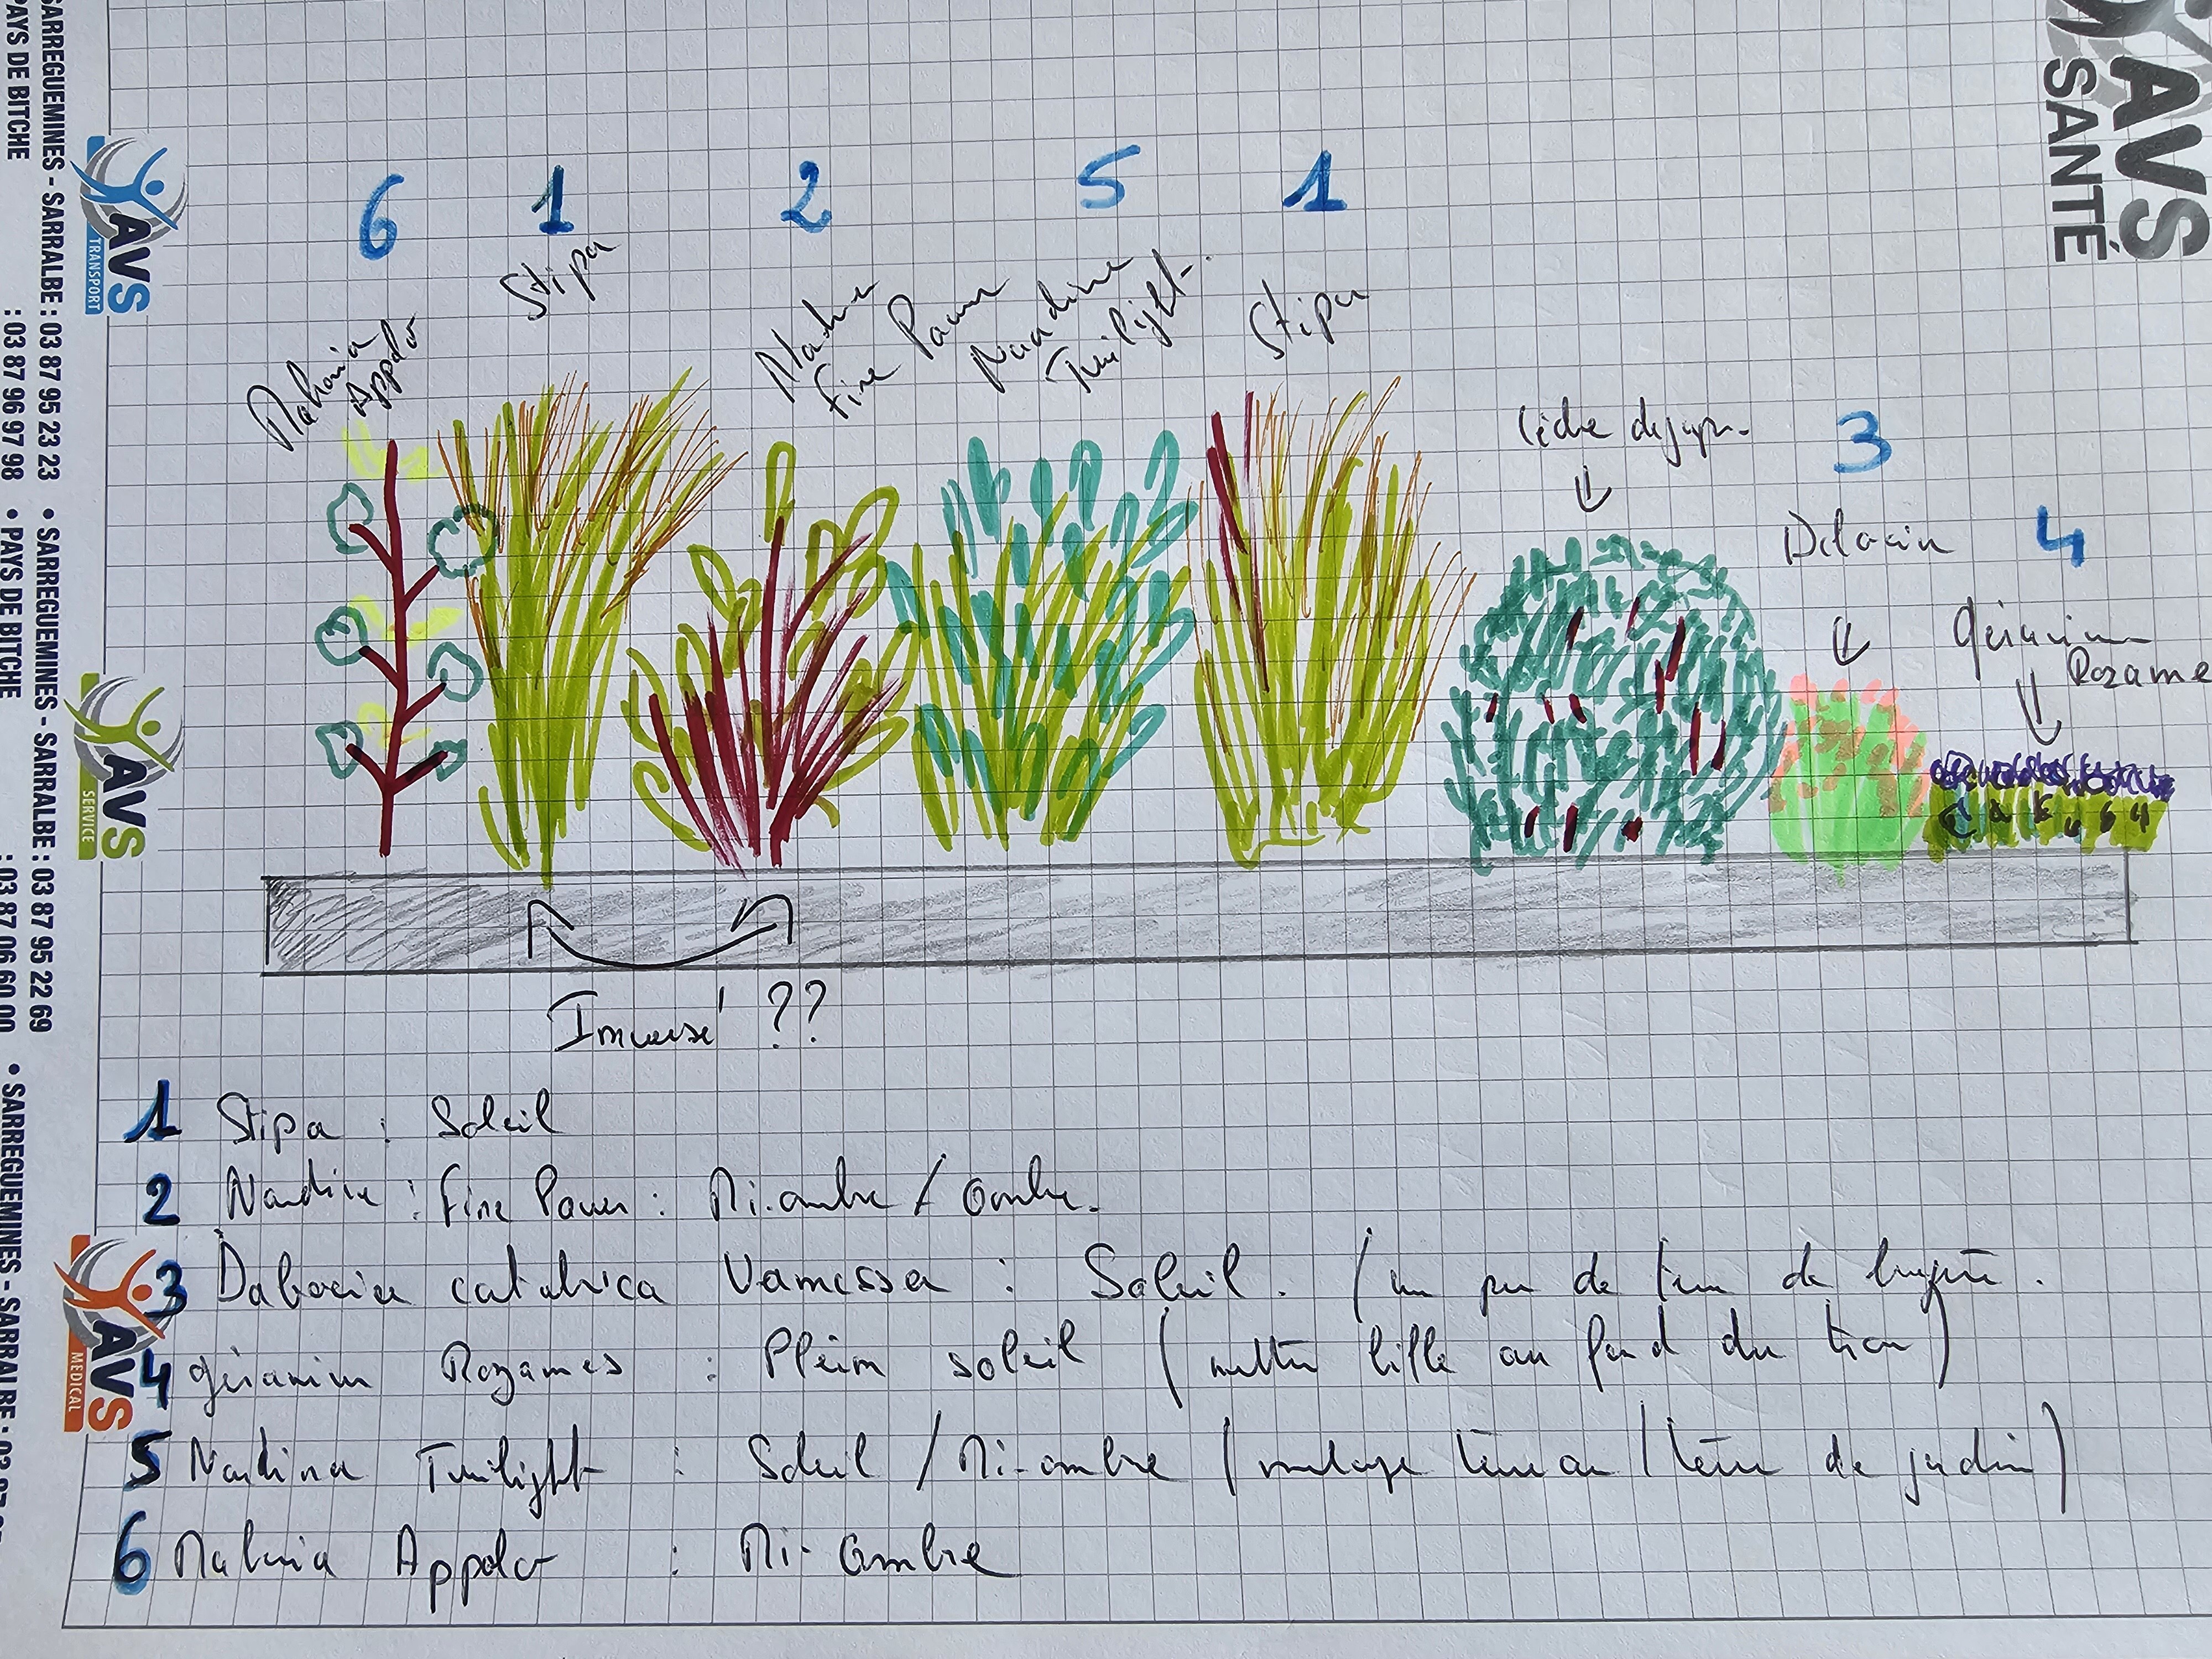 SARREGUEMINES - SARRALBE : 03 87 95 23 23 • SARREGUEMINES - SARRALBE : 03 87 95 22 69 • SARREGUEMINES - SARRALBE : 03 87
PAYS DE BITCHE : 03 87 96 97 98 • PAYS DE BITCHE : 03 87 06 60 00
AVS
SANTÉ
AVS
TRANSPORT
AVS
SERVICE
AVS
MEDICAL
6 1 2 5 1
Mahonia
Appolo
Stipa
Fine Power
Nandine
Twilight
Stipa
3
4
Géranium
Rozanne
Inversé ??
1 Stipa : Soleil
2 Nandine : Fine Power : Mi.ombre / Ombre.
3 Daboecia catabrica Vanessa : Soleil. (un peu de terre de bruyère.
4 géranium Rozannes : Plein soleil (mettre bille au fond du trou)
5 Nandina Twilight : Soleil / Mi-ombre (mélange terreau / terre de jardin)
6 Mahonia Appolo : Mi-Ombre